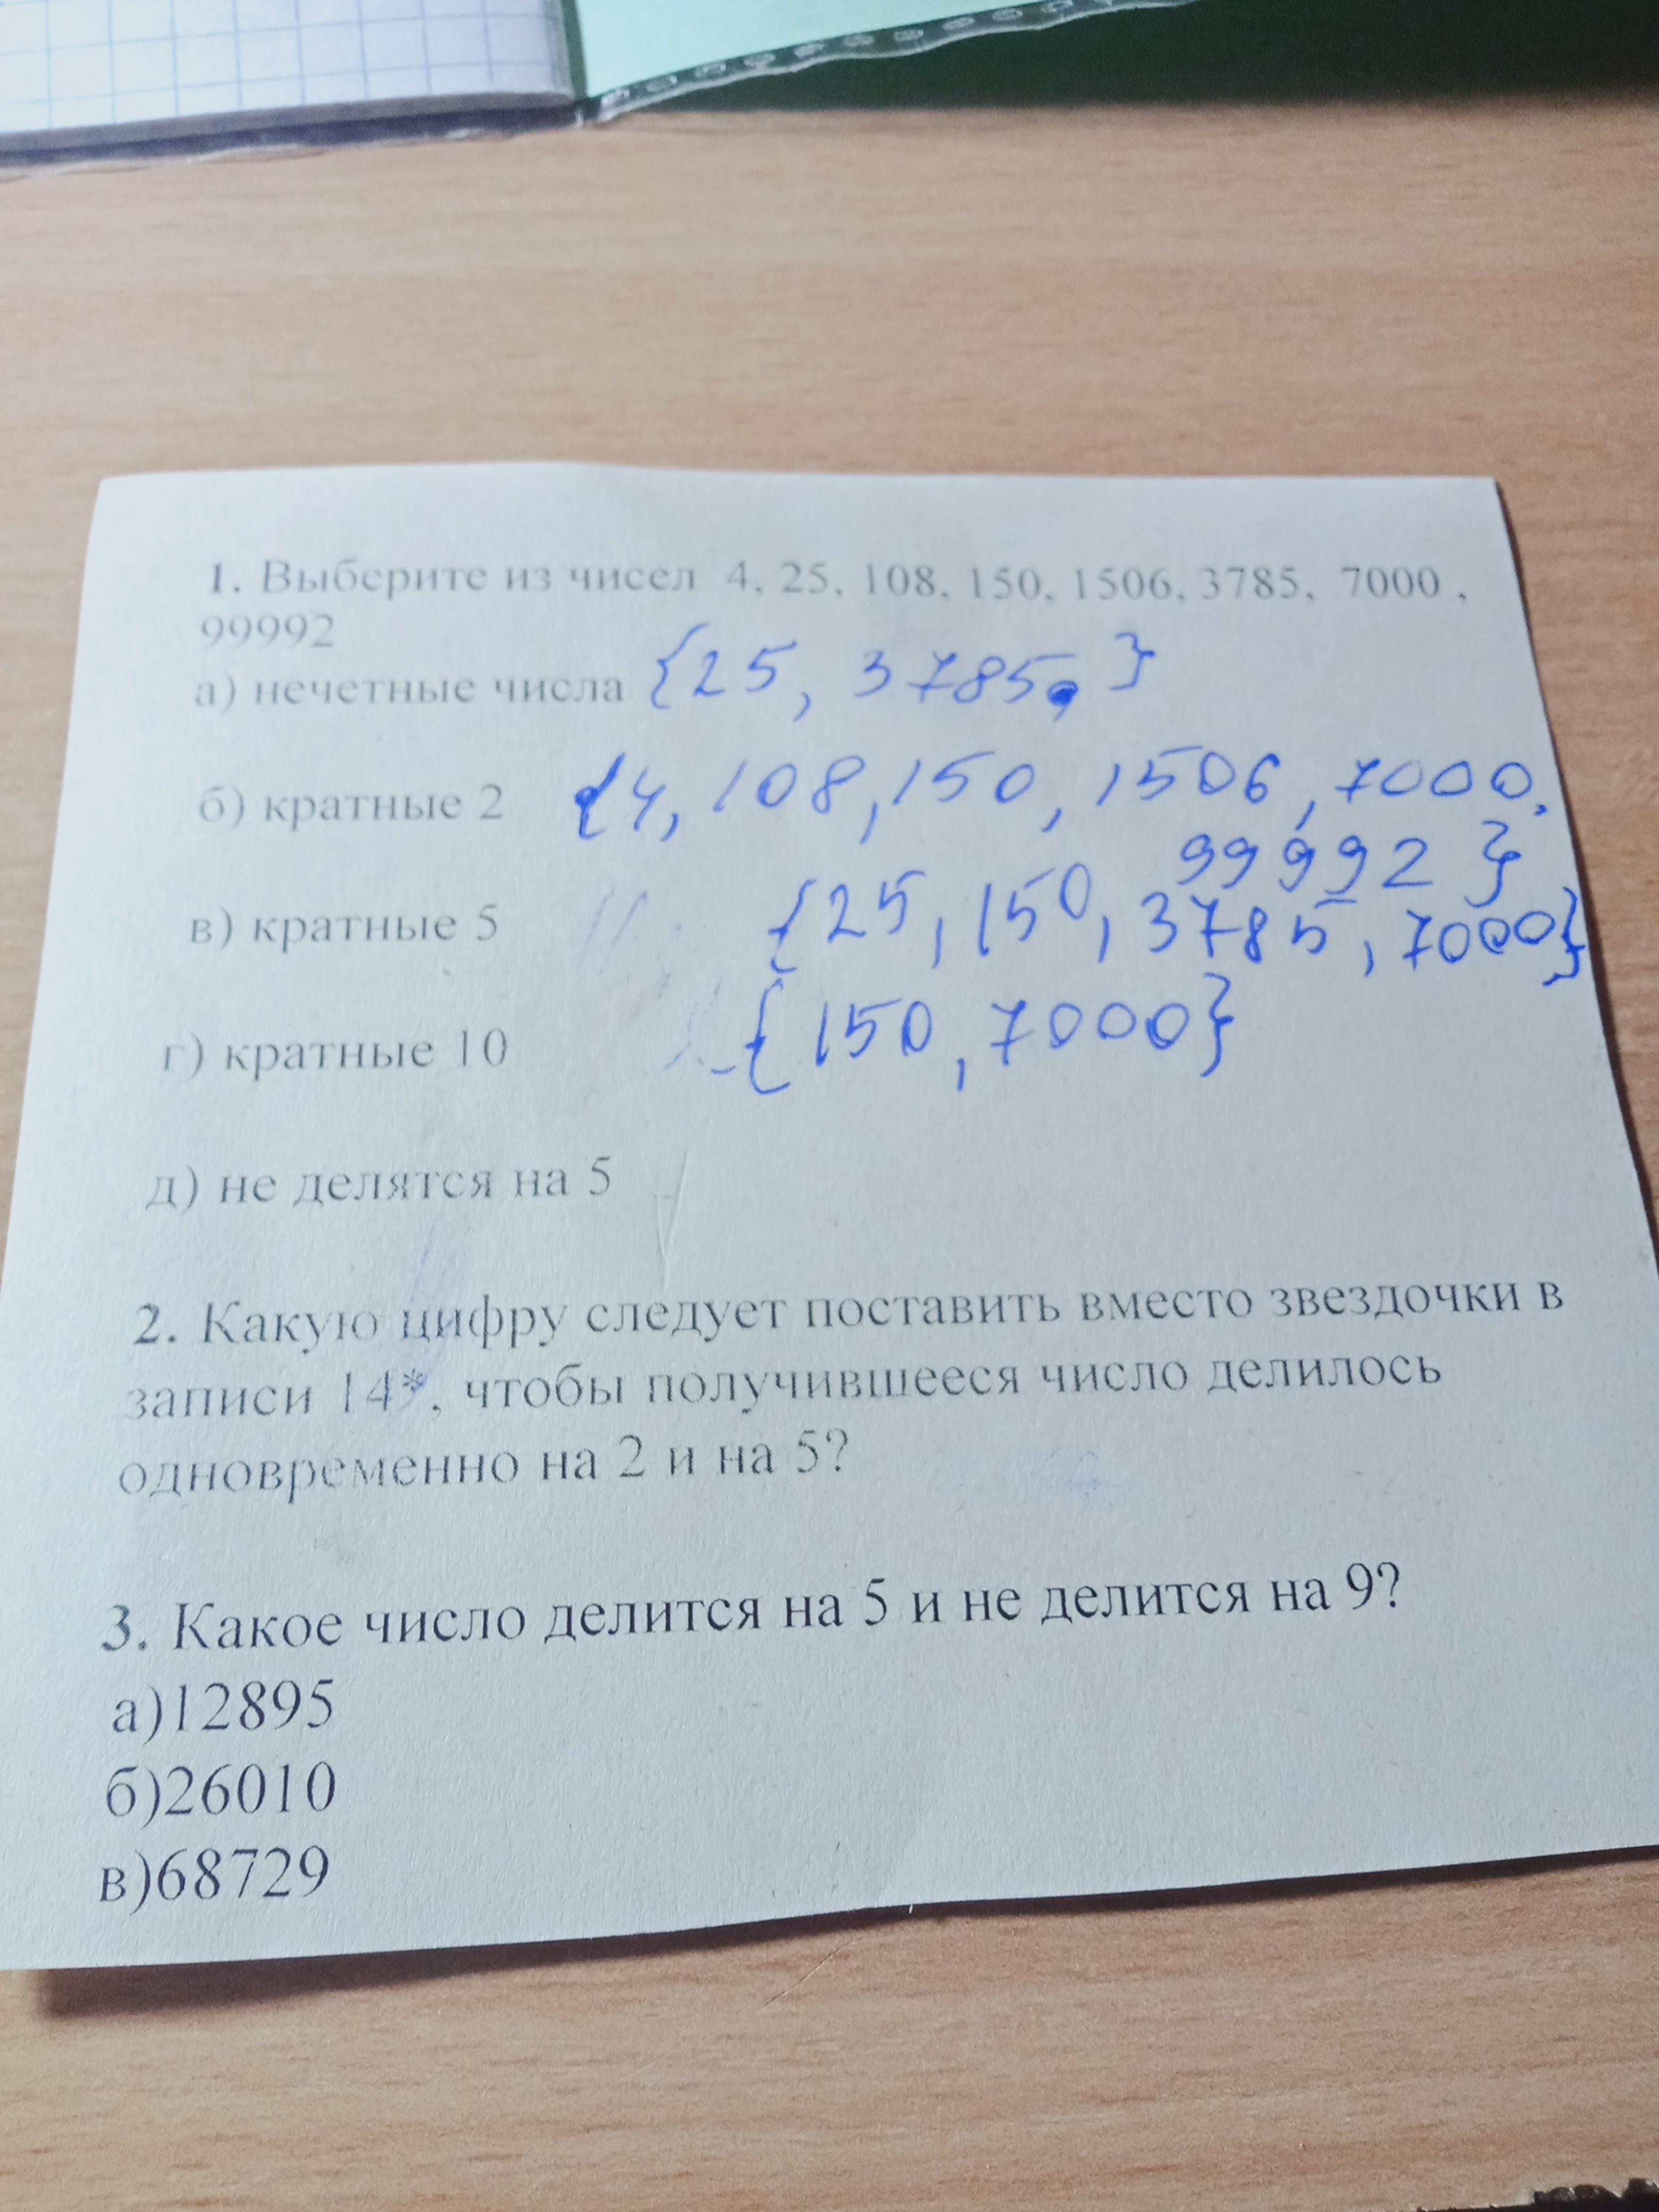 1. Выберите из чисел 4, 25, 108, 150, 1506, 3785, 7000 ,
99992
а) нечетные числа {25, 3785, }
б) кратные 2 {4, 108, 150, 1506, 7000,
99992 }
в) кратные 5 {25, 150, 3785, 7000}
г) кратные 10 {150, 7000}
д) не делятся на 5
2. Какую цифру следует поставить вместо звездочки в
записи 14*, чтобы получившееся число делилось
одновременно на 2 и на 5?
3. Какое число делится на 5 и не делится на 9?
а)12895
б)26010
в)68729